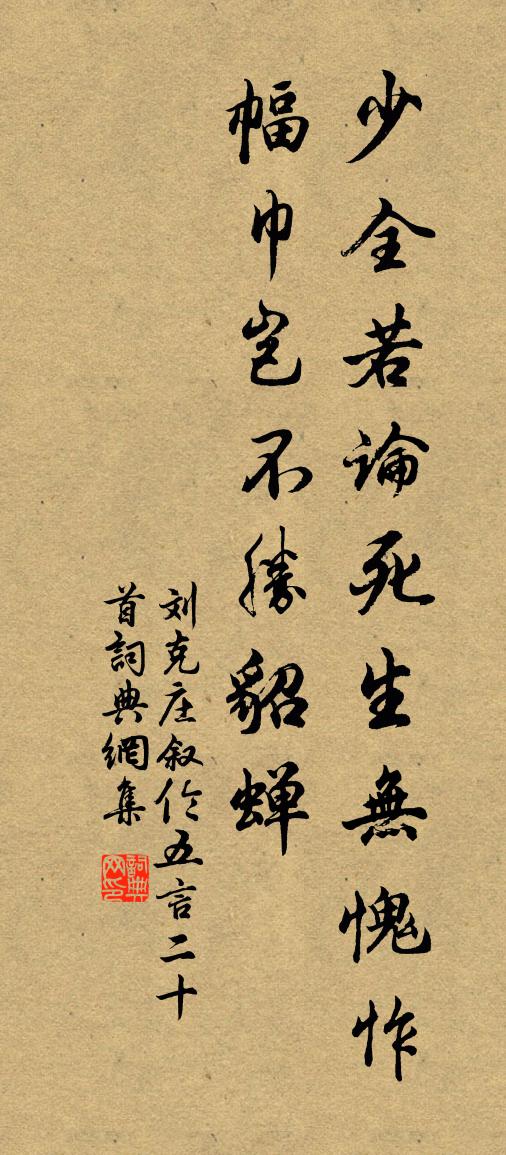 少全若論死生無愧怍
幅巾岂不勝貂蝉
刘克庄叙伦五言二十
首詞典網集
詞典网印